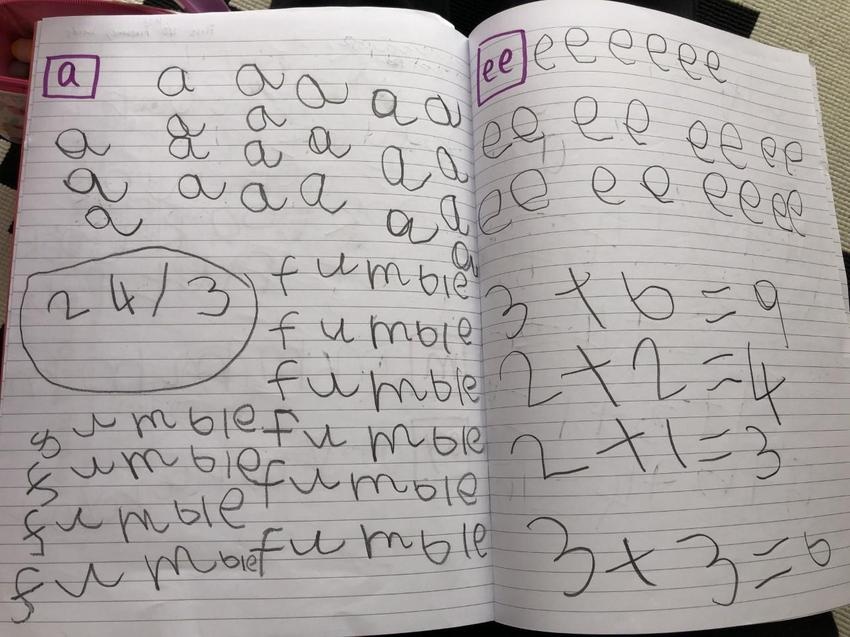 a a a a a a
a a
a a a a a a
a a a a
a a a
a
24/3
fumble
fumble
fumble
fumble fumble
fumble fumble
fumble
fumble fumble
ee e e e e e e
ee ee ee ee
ee ee ee ee
3 + 6 = 9
2 + 2 = 4
2 + 1 = 3
3 + 3 = 6